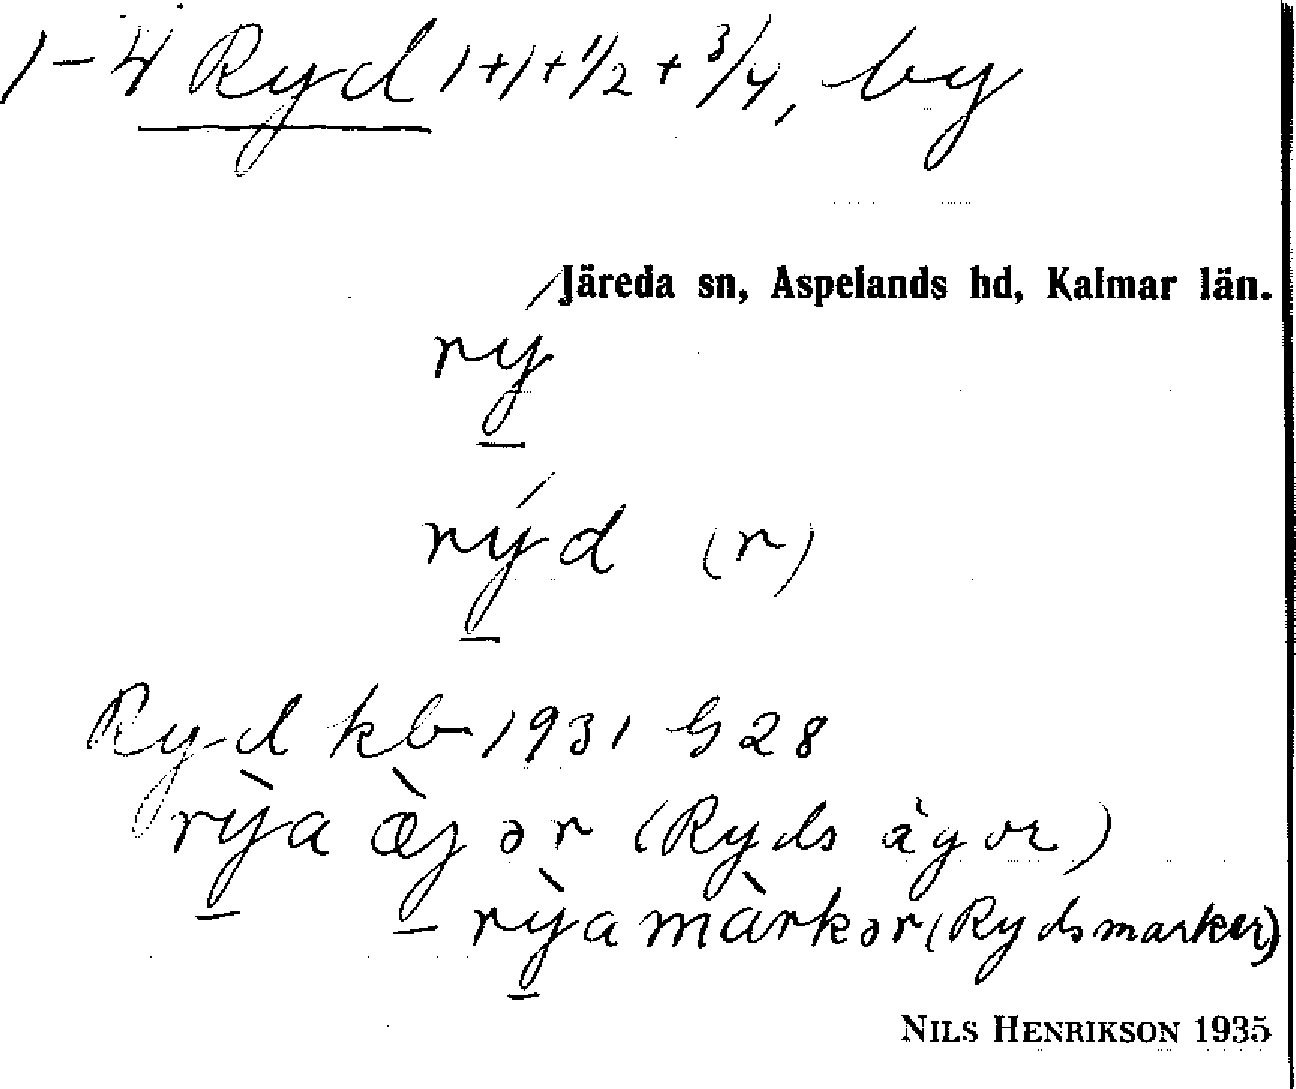 1-4 Ryd 1+1+1/2+3/4, by
Järeda sn, Aspelands hd, Kalmar län.
rý
rýd (r)
Ryd kb 1931 G 28
rỳa æ̀jər (Ryds ägor)
rỳamàrkər (Rydsmarker)
NILS HENRIKSON 1935